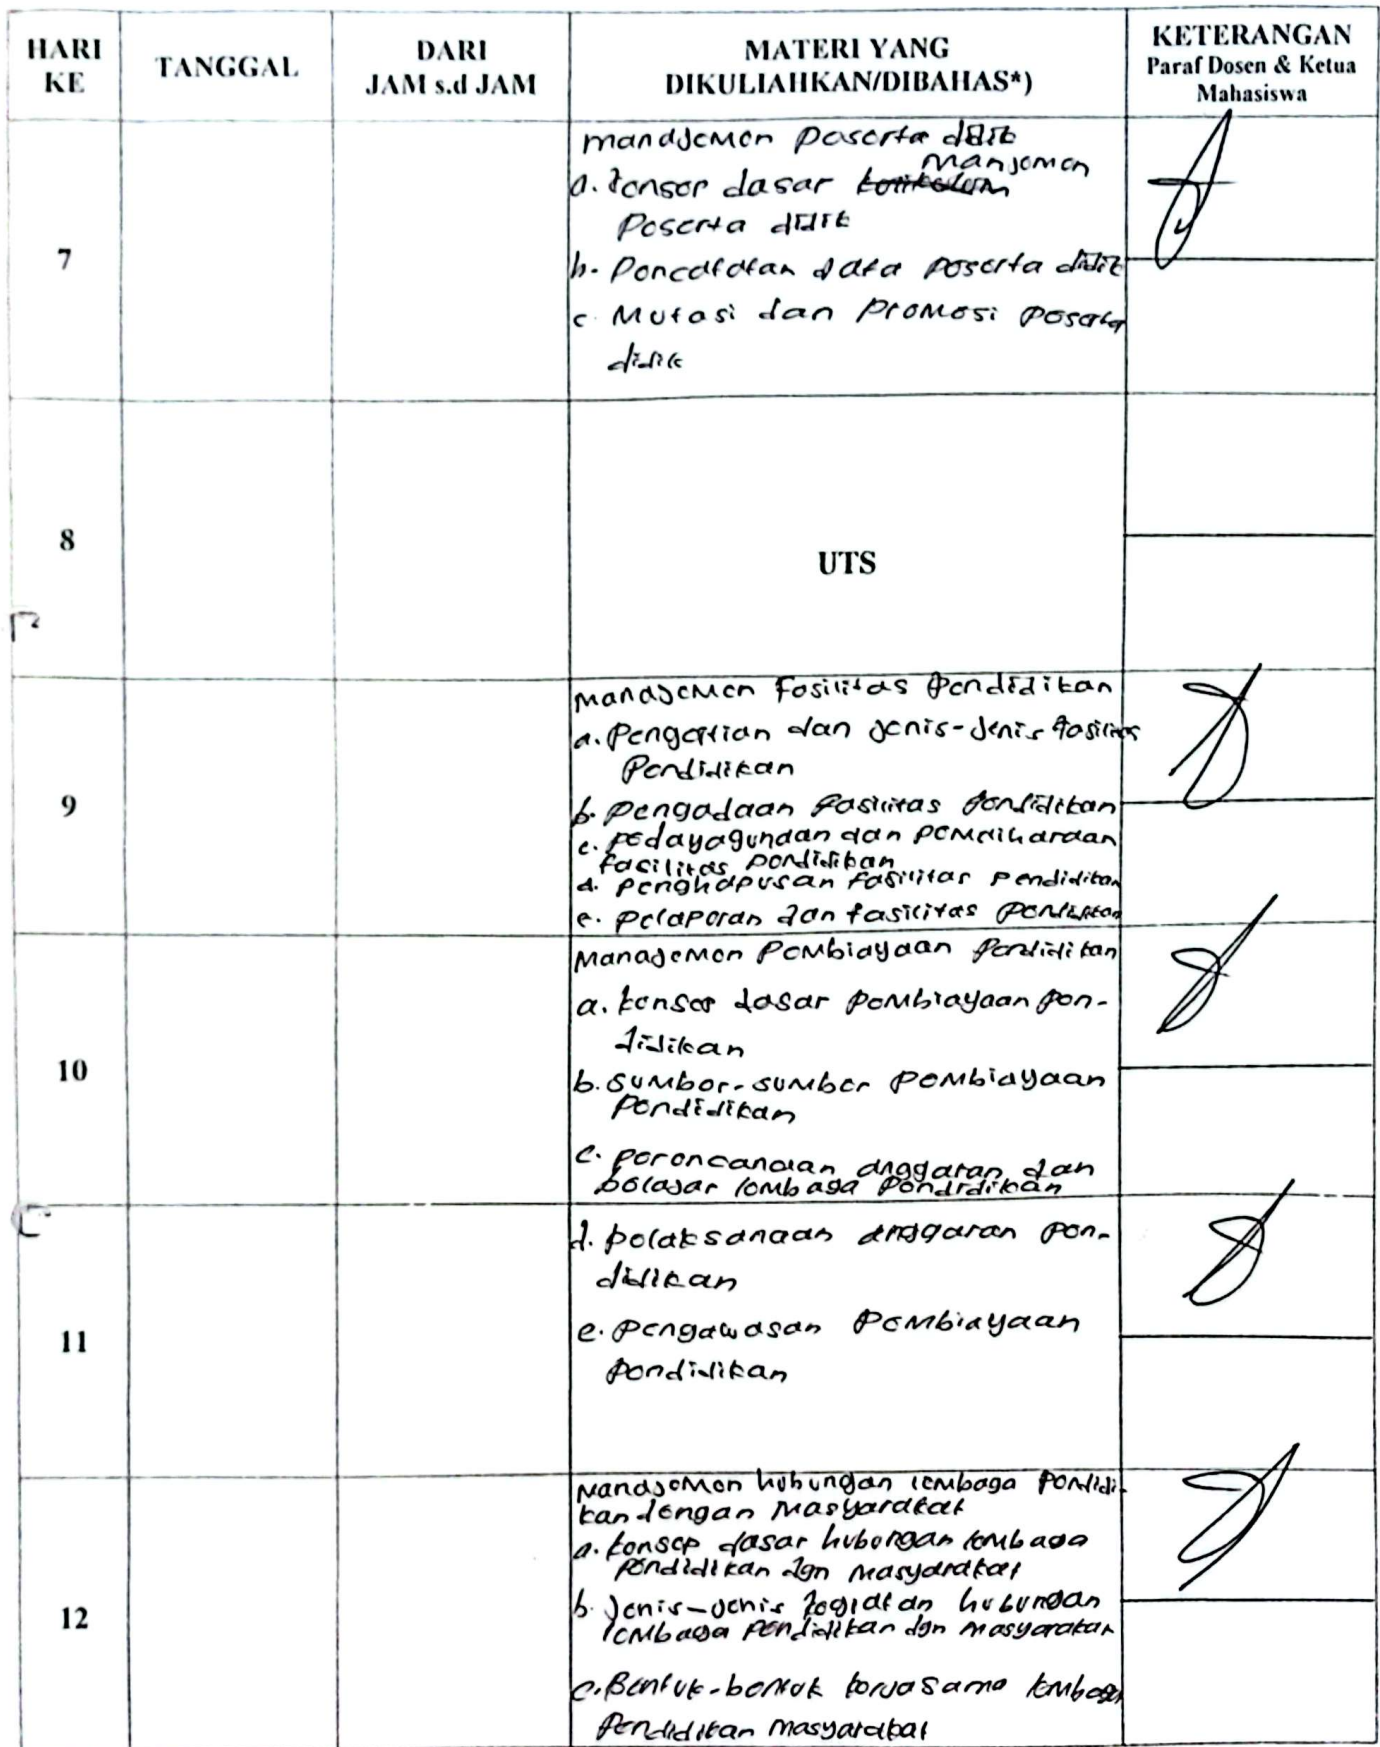 HARI KE
TANGGAL
DARI
JAM s.d JAM
MATERI YANG
DIKULIAHKAN/DIBAHAS*)
KETERANGAN
Paraf Dosen & Ketua
Mahasiswa
7
manajemen peserta didik
manjemen
a. konsep dasar kurikulum
Peserta didik
b. Pencatatan data peserta didik
c. Mutasi dan Promosi peserta
didik
8
UTS
9
manajemen Fasilitas Pendidikan
a. Pengertian dan jenis-jenis fasilitas
Pendidikan
b. Pengadaan fasilitas pendidikan
c. pedayagunaan dan pemeliharaan
fasilitas pendidikan
d. Penghapusan fasilitas pendidikan
e. pelaporan dan fasilitas pendidikan
10
Manajemen Pembiayaan Pendidikan
a. konsep dasar pembiayaan pen-
didikan
b. sumber-sumber pembiayaan
Pendidikan
c. perencanaan anggaran dan
belajar lembaga pendidikan
11
d. pelaksanaan anggaran pen-
didikan
e. pengawasan Pembiayaan
pendidikan
12
Manajemen hubungan lembaga pendidi-
kan dengan Masyarakat
a. konsep dasar hubungan lembaga
pendidikan dgn masyarakat
b. Jenis-jenis kegiatan hubungan
lembaga pendidikan dgn masyarakat
c. Bentuk-bentuk kerjasama lembaga
Pendidikan masyarakat